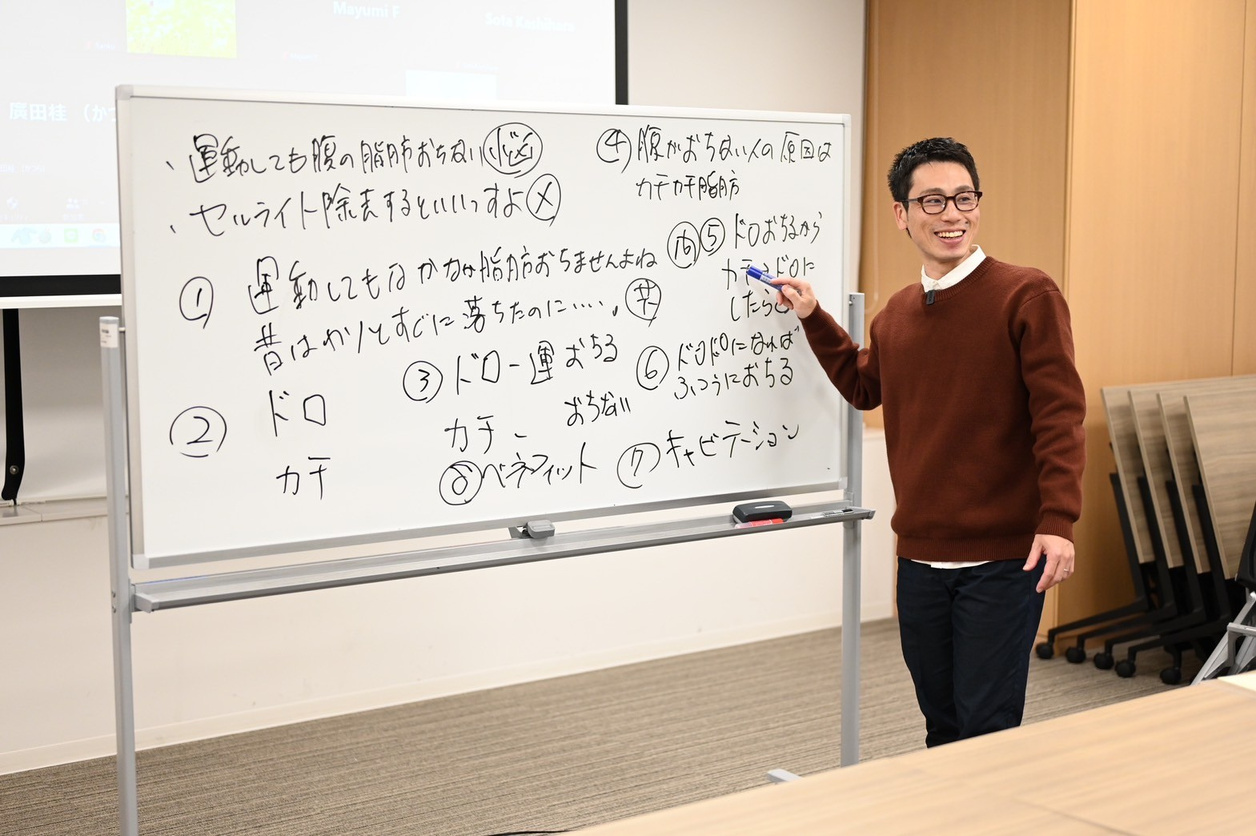 Mayumi F
Sota Kashihara
廣田桂 （かつ
、運動しても腹の脂肪おちない 悩
、セルライト除去するといいっすよ ㄨ
① 運動してもなかなか脂肪おちませんよね
昔はガリとすぐに落ちたのに・・・・。 共
② ドロ
カチ
③ ドロ-運 おちる
カチ、 おちない
⓪ ベネフィット
④ 腹がおちない人の原因は
カチカチ脂肪
⑤ ドロおちるから
カチ→ドロに
したらと
⑥ ドロドロになれば
ふつうにおちる
⑦ キャビテーション